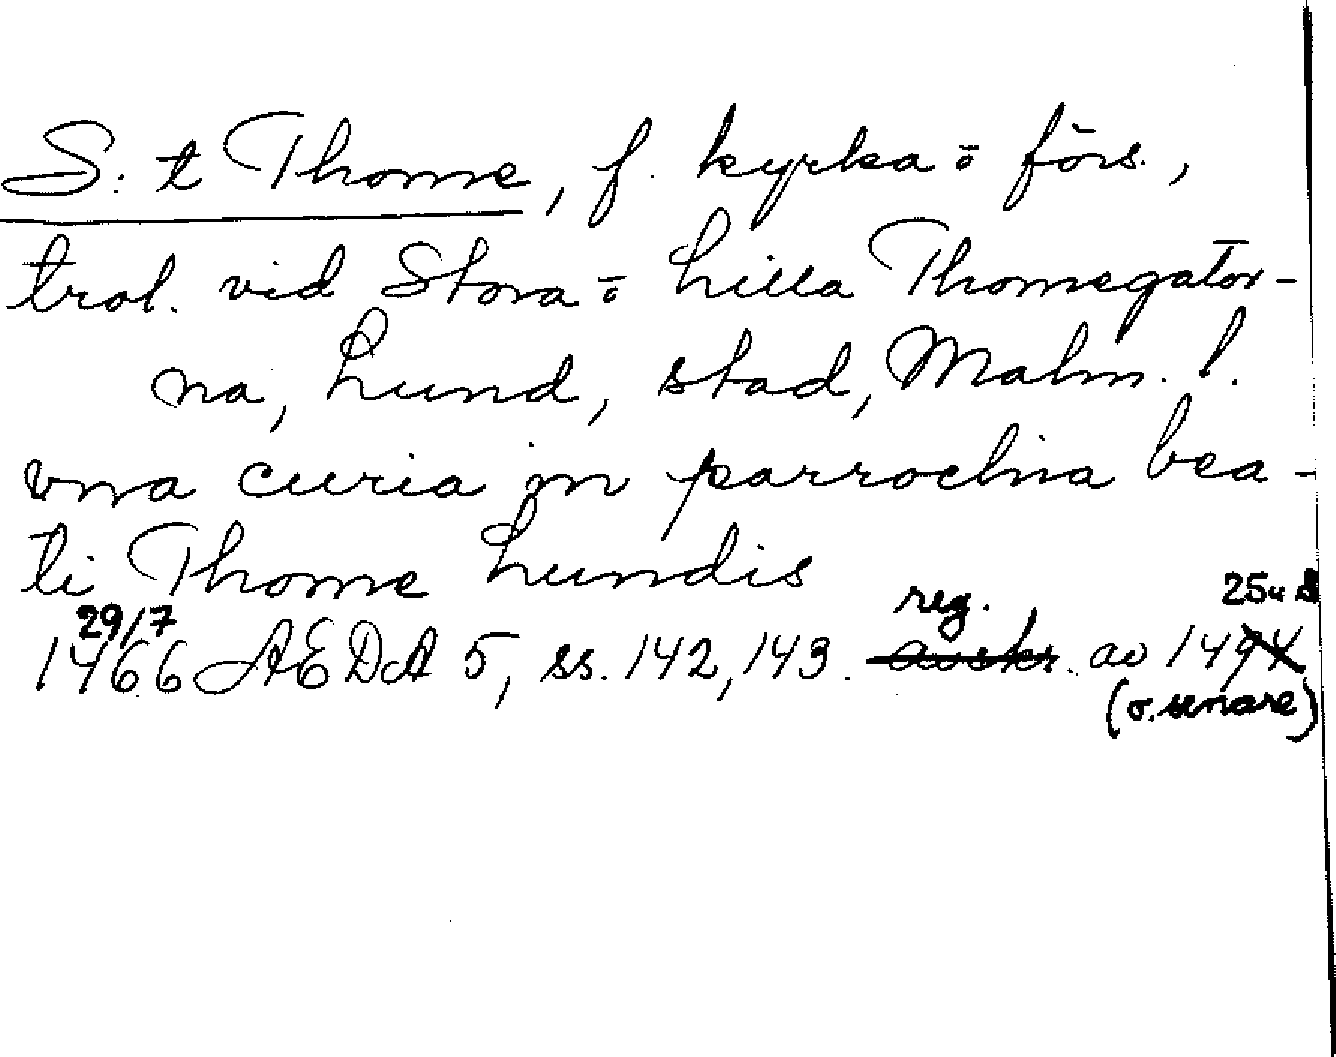 S:t Thome, f. kyrka o förs.,
trol. vid Stora o Lilla Thomegator-
na, Lund, stad, Malm. l.
vna curia in parrochia bea-
ti Thome Lundis
29/7 reg.
1466 ÆDA 5, ss. 142, 143. avskr. av 1494
(o. senare)